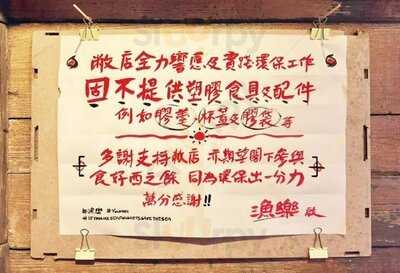 敝店全力響應及實踐環保工作
固不提供塑膠食具及配件
例如膠羹,杯蓋及膠袋等
多謝支持敝店 亦期望閣下參與
食好西之餘 同為環保出一分力
萬分感謝!!
漁樂 啟